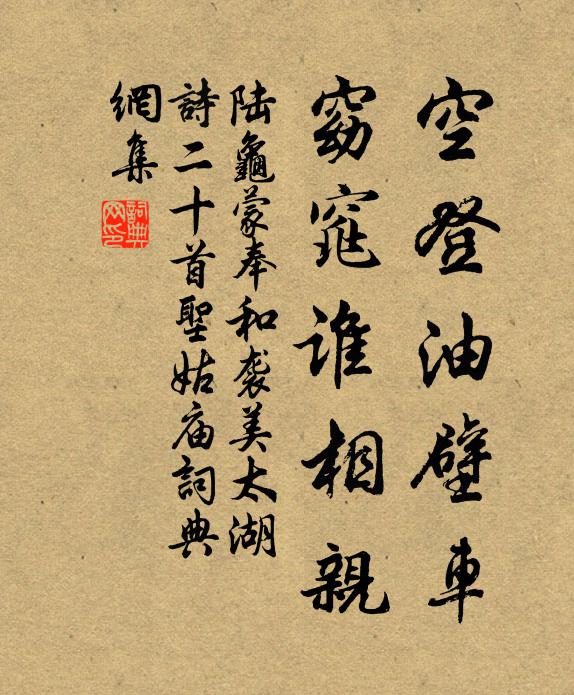 空登油壁車
窈窕谁相親
陆龜蒙奉和袭美太湖
詩二十首聖姑庙詞典
網集
詞典
网印